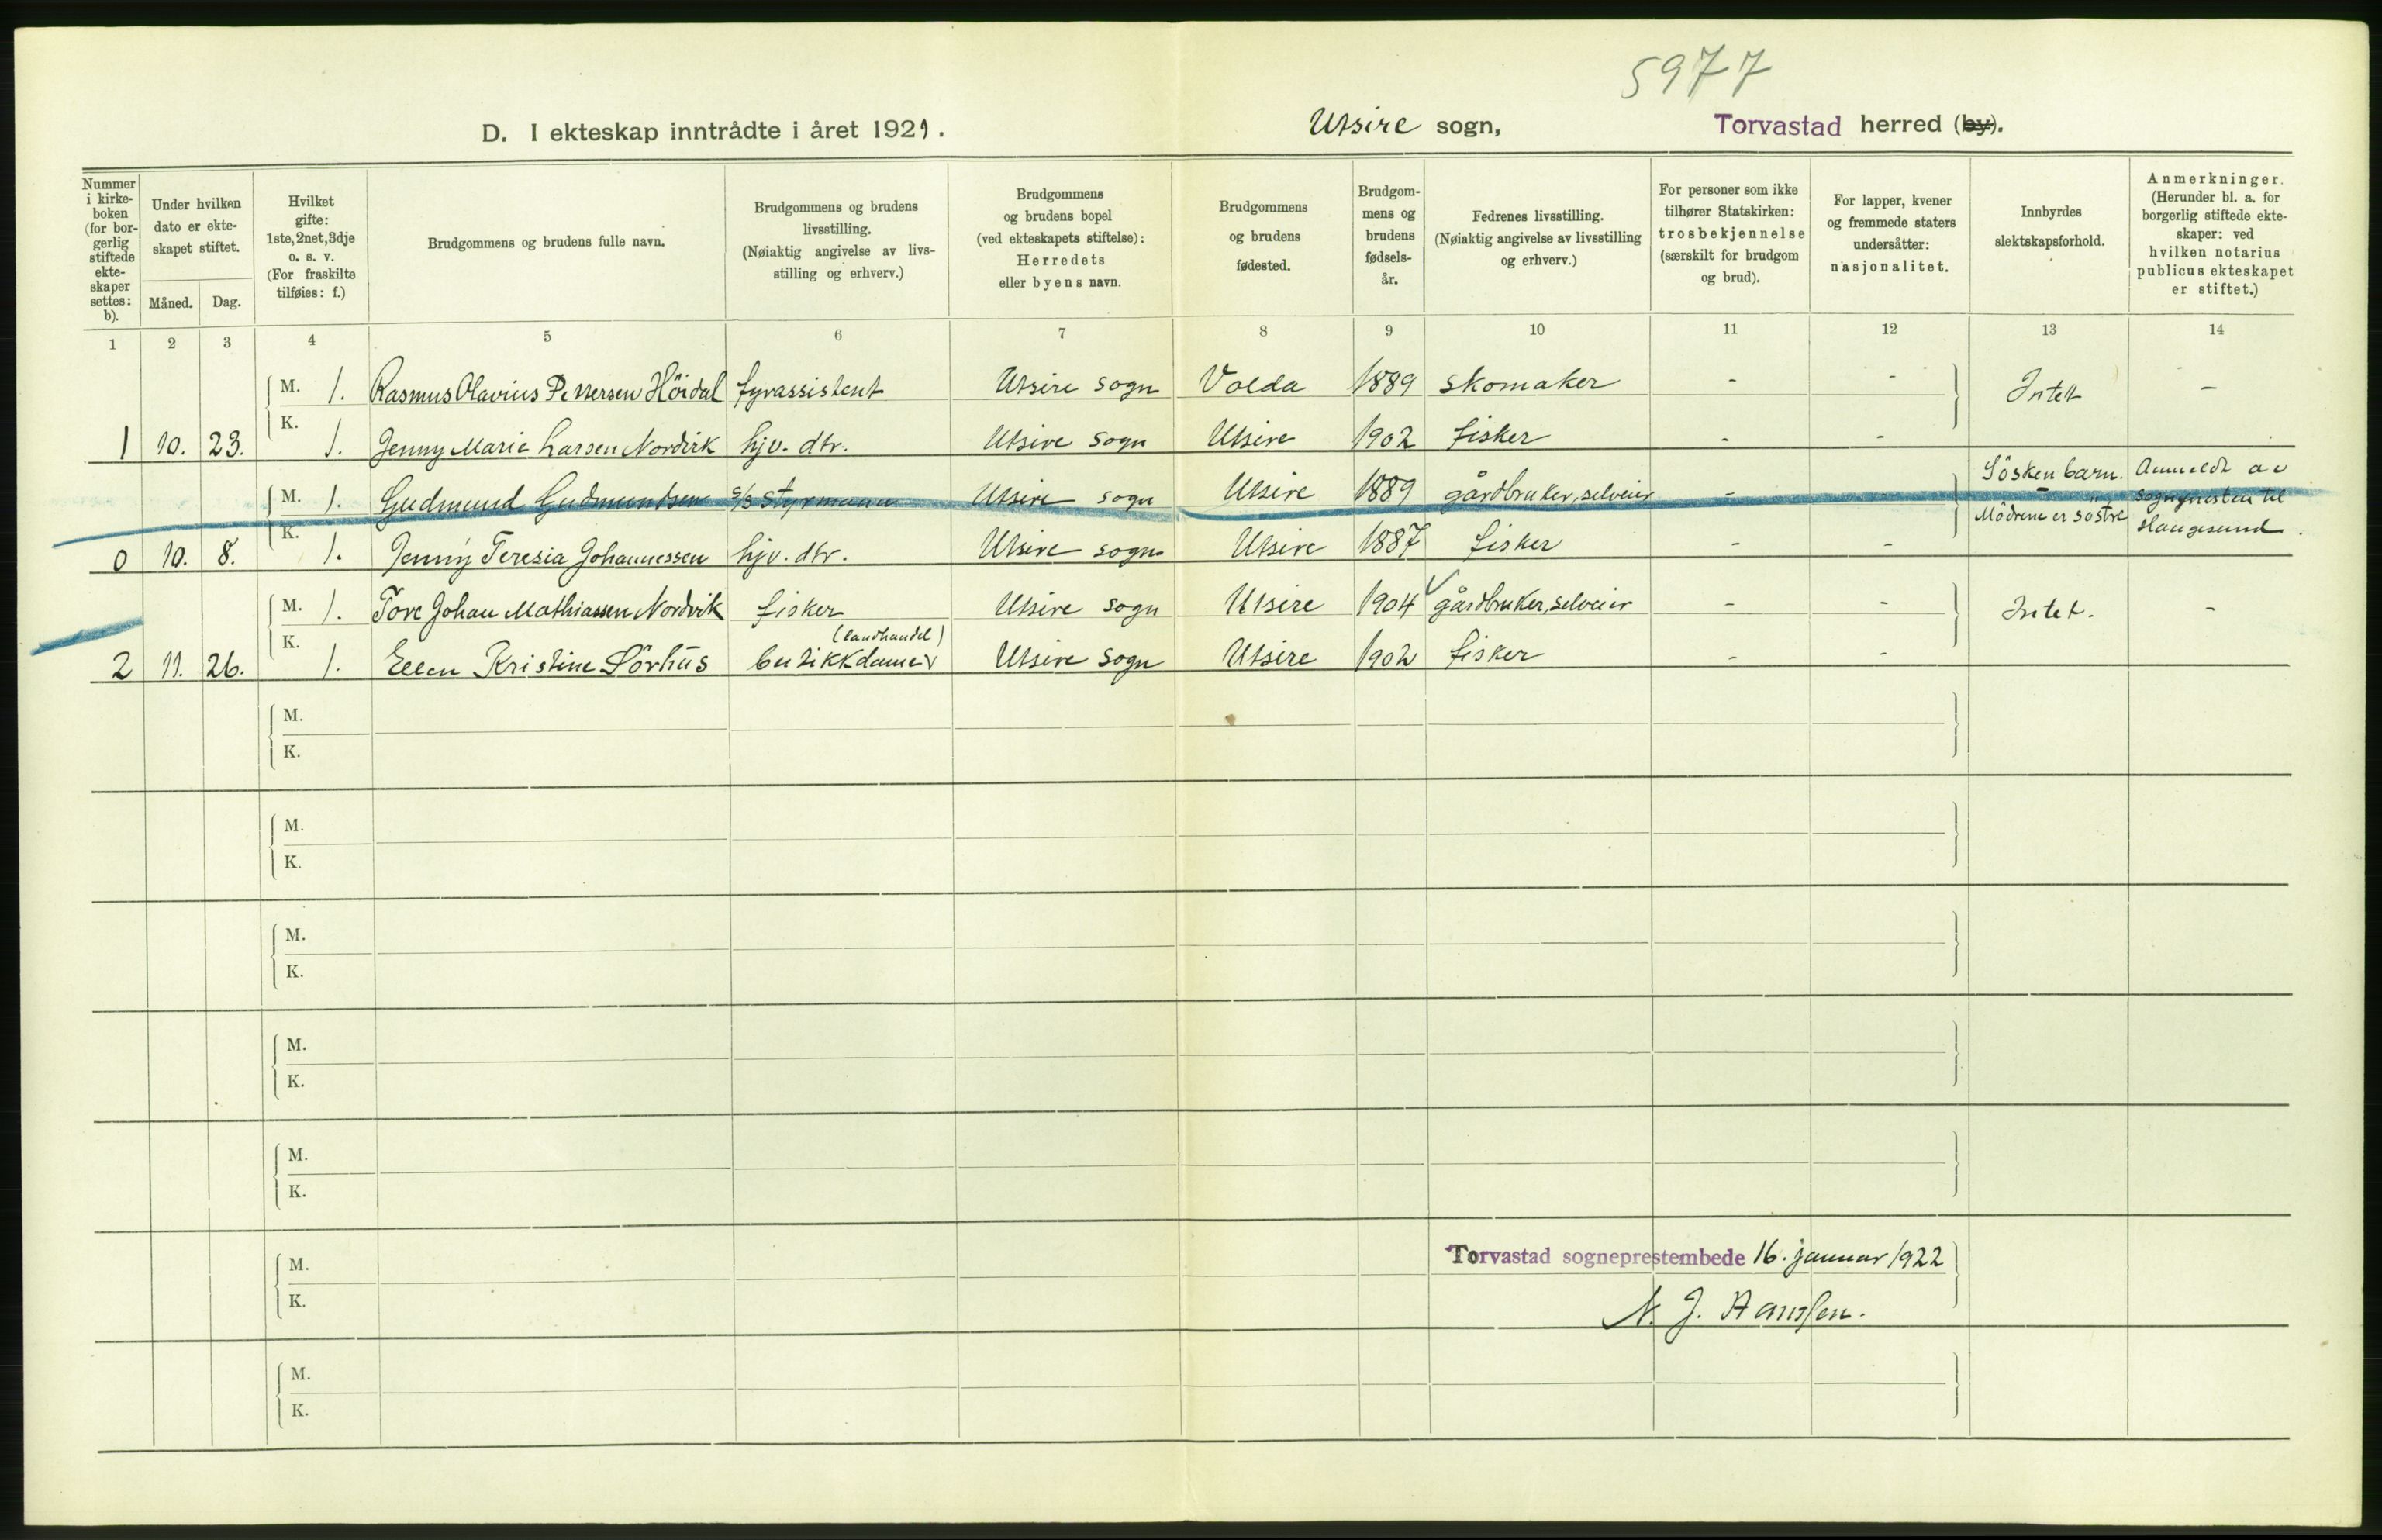 5977
D. I ekteskap inntrådte i året 1921. Utsire sogn, Torvastad herred (by).
Nummer i kirke-boken (for bor-gerlig stiftede ekte-skaper settes: b).
Under hvilken dato er ekte-skapet stiftet.
Måned. Dag.
Hvilket gifte: 1ste, 2net, 3dje o. s. v. (For fraskilte tilføies: f.)
Brudgommens og brudens fulle navn.
Brudgommens og brudens livsstilling. (Nøiaktig angivelse av livs-stilling og erhverv.)
Brudgommens og brudens bopel (ved ekteskapets stiftelse): Herredets eller byens navn.
Brudgommens og brudens fødested.
Brudgom-mens og brudens fødsels-år.
Fedrenes livsstilling. (Nøiaktig angivelse av livsstilling og erhverv.)
For personer som ikke tilhører Statskirken: trosbekjennelse (særskilt for brudgom og brud).
For lapper, kvener og fremmede staters undersåtter: nasjonalitet.
Innbyrdes slektskapsforhold.
Anmerkninger. (Herunder bl. a. for borgerlig stiftede ekte-skaper: ved hvilken notarius publicus ekteskapet er stiftet.)
1 2 3 4 5 6 7 8 9 10 11 12 13 14
M. 1. Rasmus Olavius Pettersen Höidal fyrassistent Utsire sogn Volda 1889 skomaker - - Intet -
K.
1 10. 23. 1. Jenny Marie Larsen Nordvik hjv. dtr. Utsire sogn Utsire 1902 fisker - -
M. 1. Gudmund Gudmundsen s/s styrmann Utsire sogn Utsire 1889 gårdbruker, selveier - - Sösken barn. Anmeldt av
Mödrene er söstre sogneprest til
K. Haugesund.
0 10. 8. 1. Jenny Teresia Johannessen hjv. dtr. Utsire sogn Utsire 1887 fisker - -
M. 1. Tore Johan Mathiassen Nordvik fisker Utsire sogn Utsire 1904 gårdbruker, selveier - - Intet. -
K. (landhandel)
2 11. 26. 1. Ellen Kristine Sörhus butikkdame Utsire sogn Utsire 1902 fisker - -
M.
K.
M.
K.
M.
K.
M.
K.
M.
K.
M. Torvastad sogneprestembede 16. januar 1922
K. N. J. Hanssen.
M.
K.